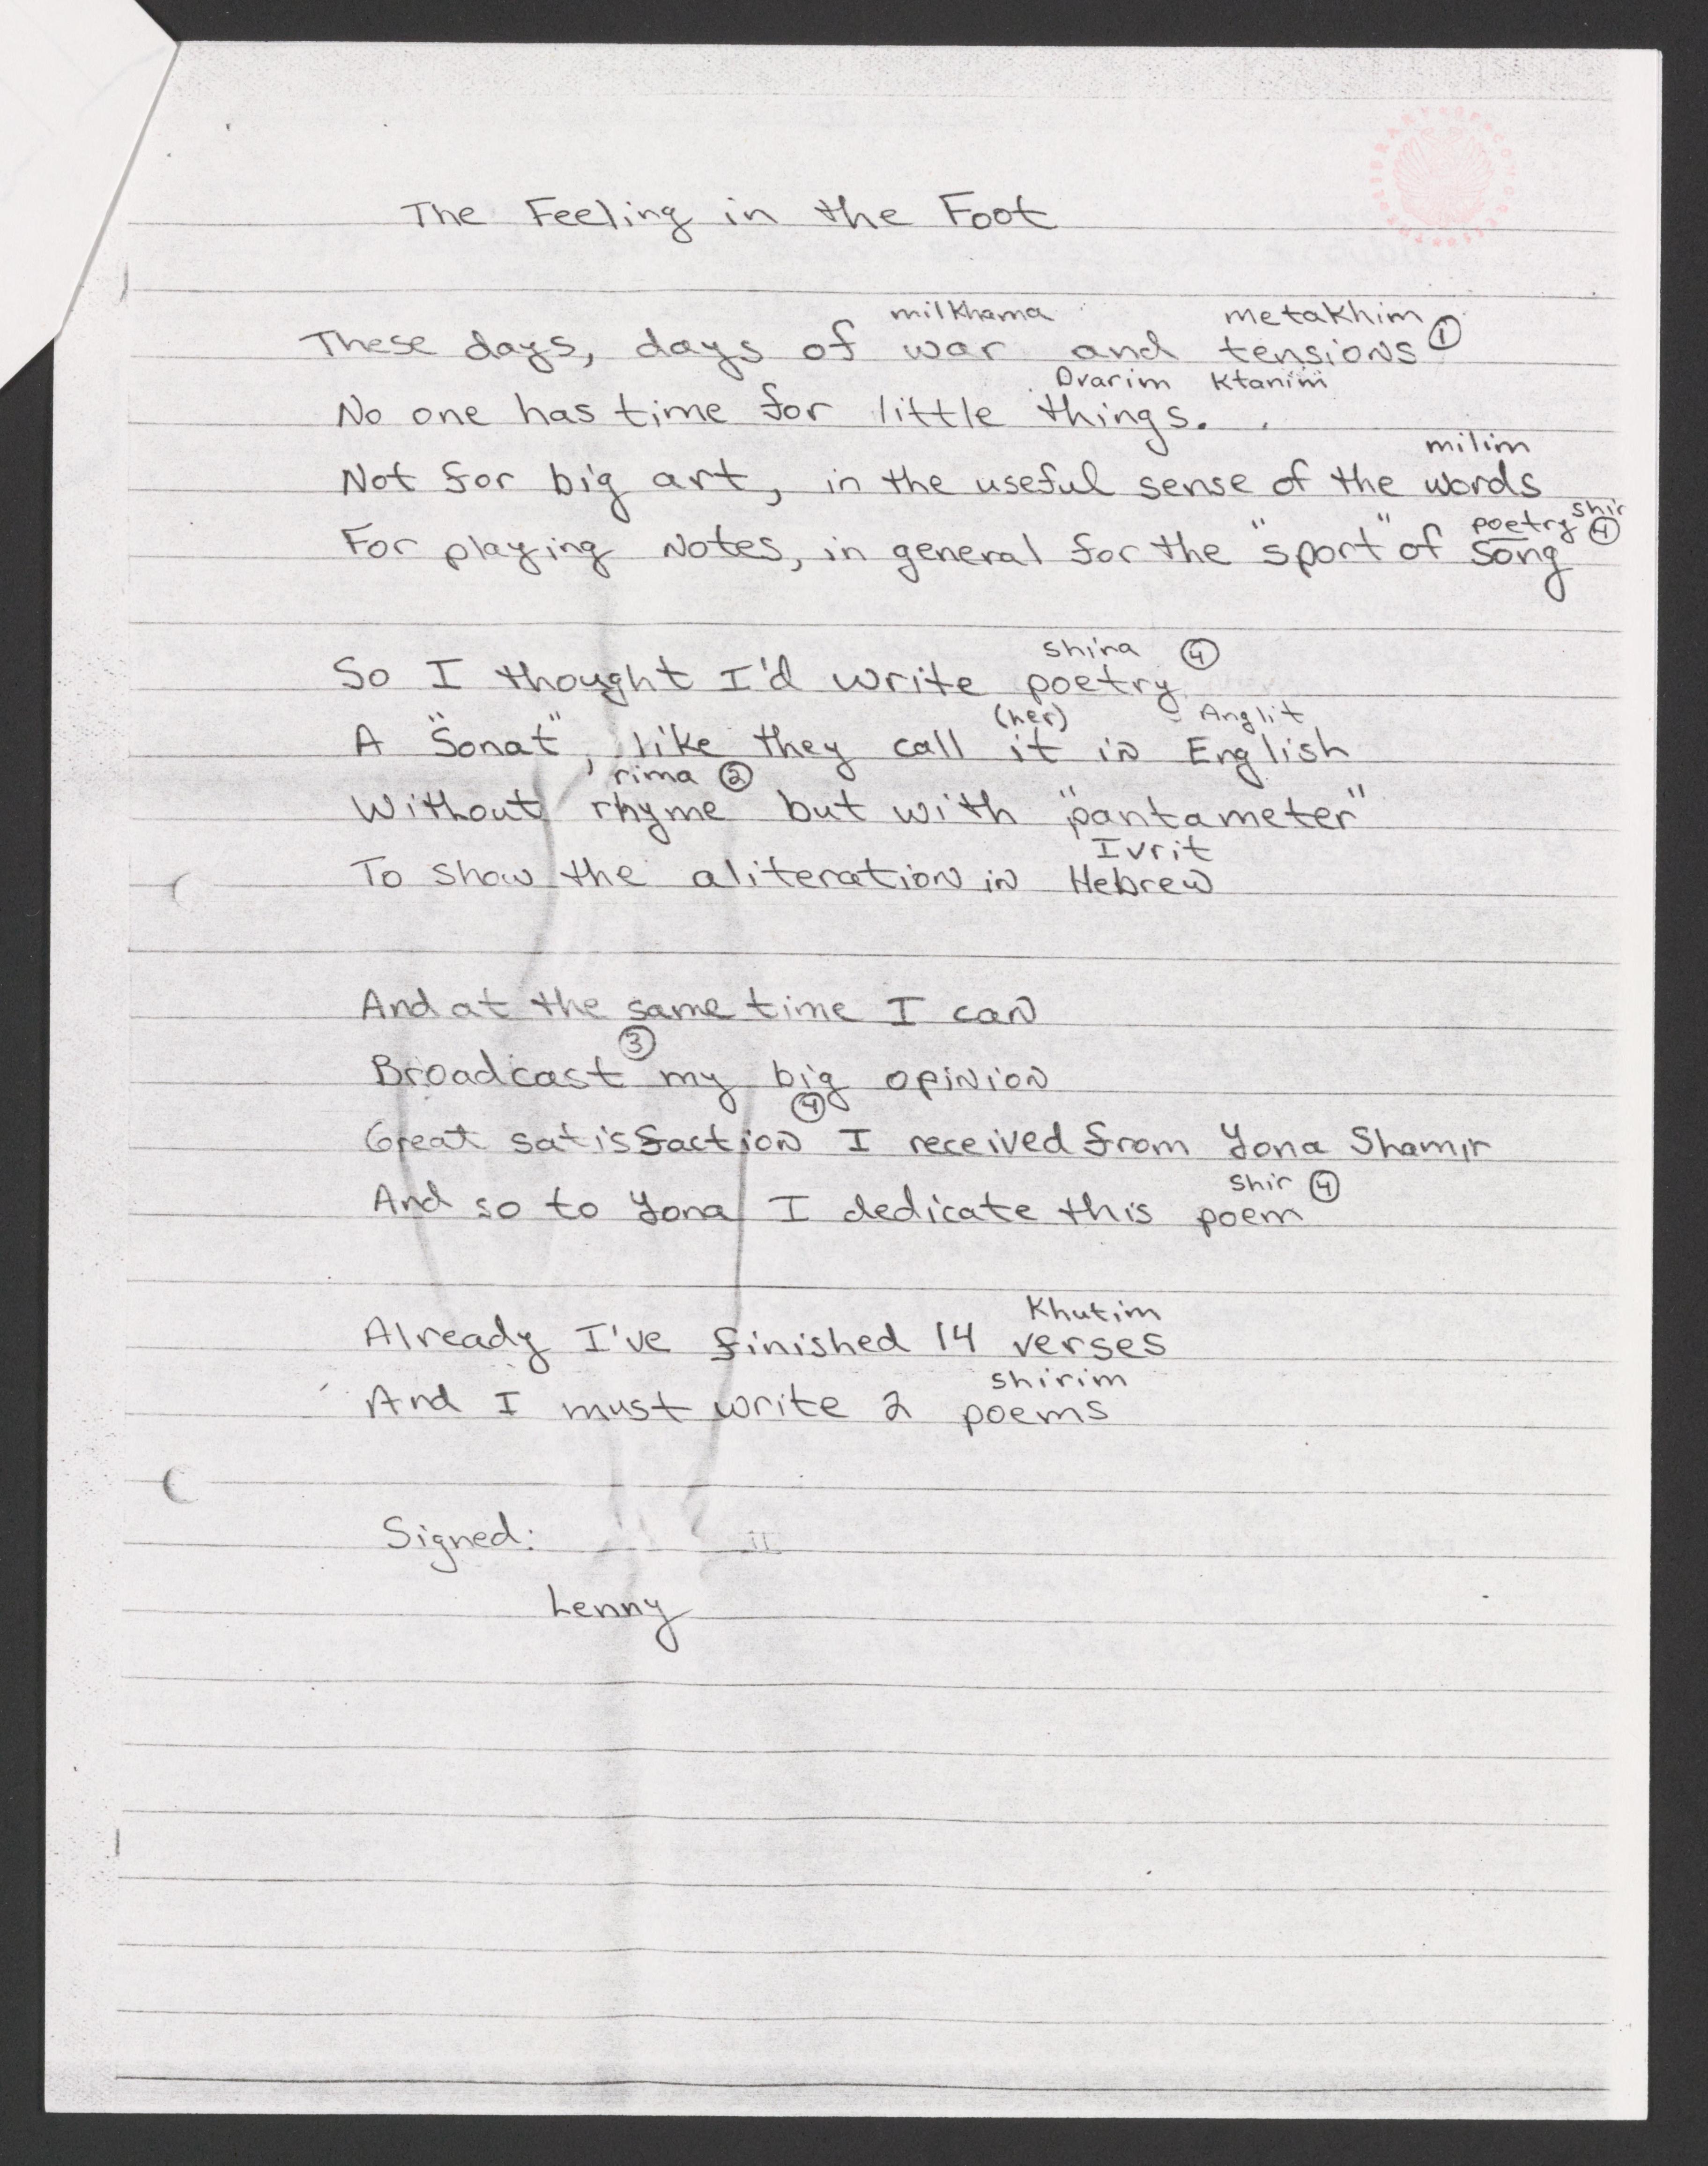 The Feeling in the Foot
milkhama metakhim
These days, days of war and tensions ①
Dvarim Ktanim
No one has time for little things.
milim
Not for big art, in the useful sense of the words
poetry shir ④
For playing notes, in general for the "sport" of song
shira ④
So I thought I'd write poetry
(her) Anglit
A "Sonat", like they call it in English
rima ②
Without rhyme but with "pantameter"
Ivrit
To show the aliteration in Hebrew
And at the same time I can
③
Broadcast my big opinion
④
Great satisfaction I received from Yona Shamir
shir ④
And so to Yona I dedicate this poem
Khutim
Already I've finished 14 verses
shirim
And I must write 2 poems
Signed:
Lenny